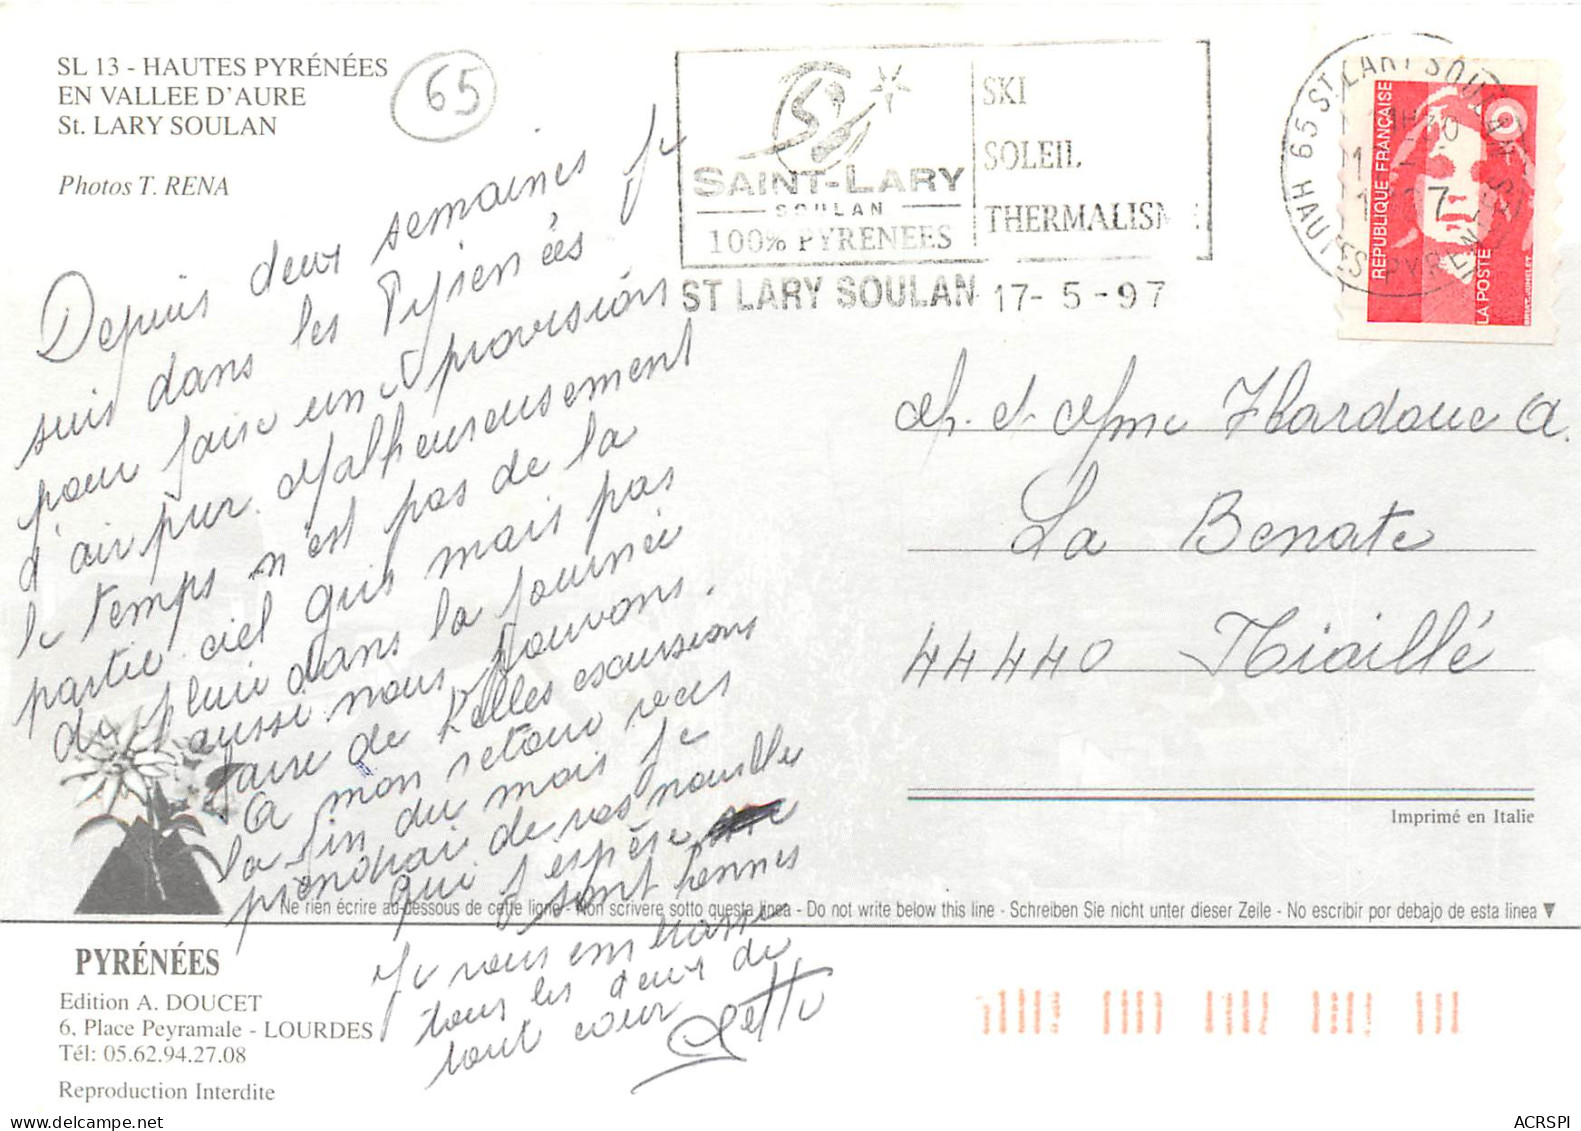 SL 13 - HAUTES PYRÉNÉES
EN VALLEE D'AURE
St. LARY SOULAN
Photos T. RENA
65
SAINT-LARY
SOULAN
100% PYRENEES
SKI
SOLEIL
THERMALISM
ST LARY SOULAN 17-5-97
65 ST LARY SOULAN
HAUTES PYRENEES
RÉPUBLIQUE FRANÇAISE
LA POSTE
Depuis deux semaines je
suis dans les Pyrénées
pour faire une provision
d'air pur. Malheureusement
le temps n'est pas de la
partie ciel gris mais pas
de pluie dans la journée
aussi nous pouvons
faire de belles excursions
A mon retour vers
la fin du mois je
prendrai de vos nouvelles
qui j'espère
sont bonnes
Je vous embrasse
tous les deux de
tout cœur
M. et Mme Hardouc A.
La Benate
44440 Riaillé
Imprimé en Italie
Ne rien écrire au-dessous de cette ligne - Non scrivere sotto questa linea - Do not write below this line - Schreiben Sie nicht unter dieser Zeile - No escribir por debajo de esta linea ▼
PYRÉNÉES
Edition A. DOUCET
6, Place Peyramale - LOURDES
Tél: 05.62.94.27.08
Reproduction Interdite
ACRSPI